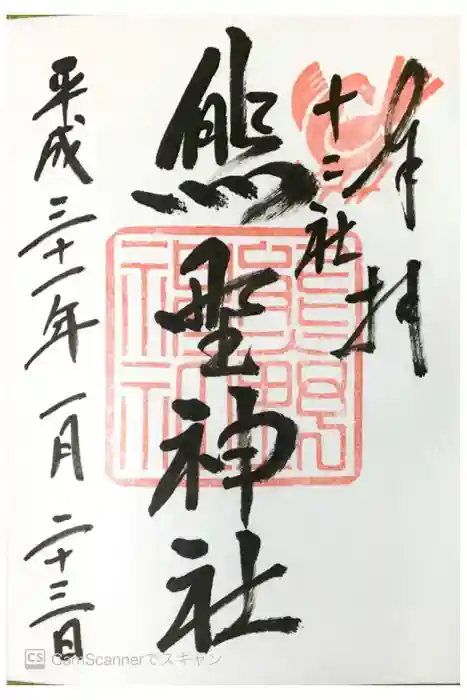 奉拝
十二社
熊野神社
平成三十一年一月二十三日
CS CamScannerでスキャン